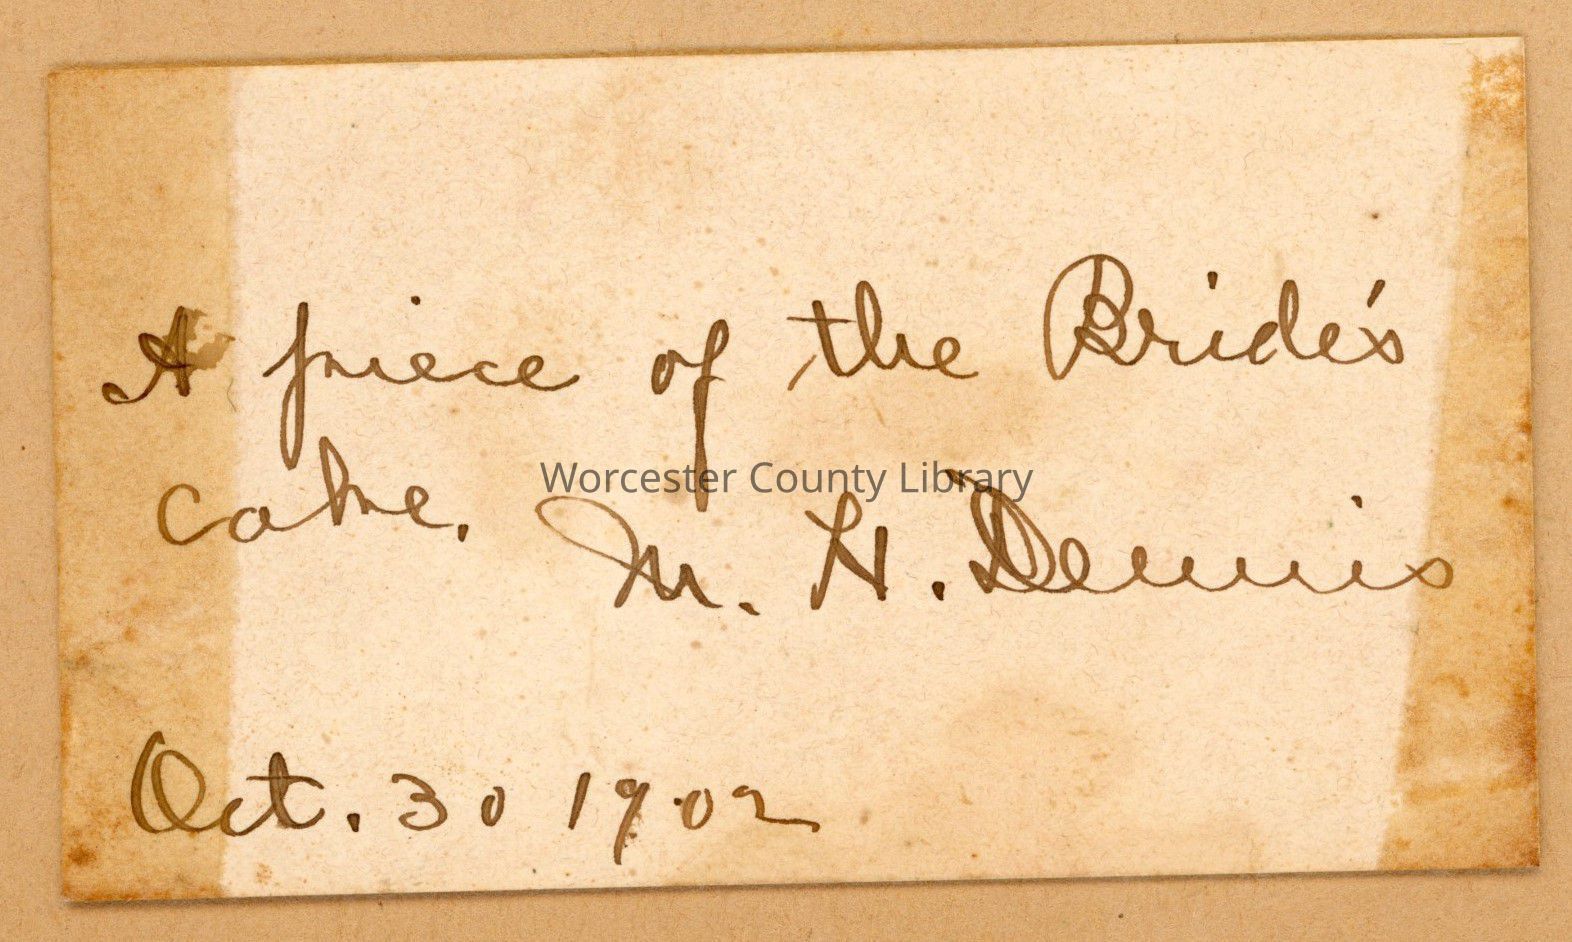 A piece of the Bride's
cake.
Worcester County Library
M. H. Dennis
Oct. 30 1902